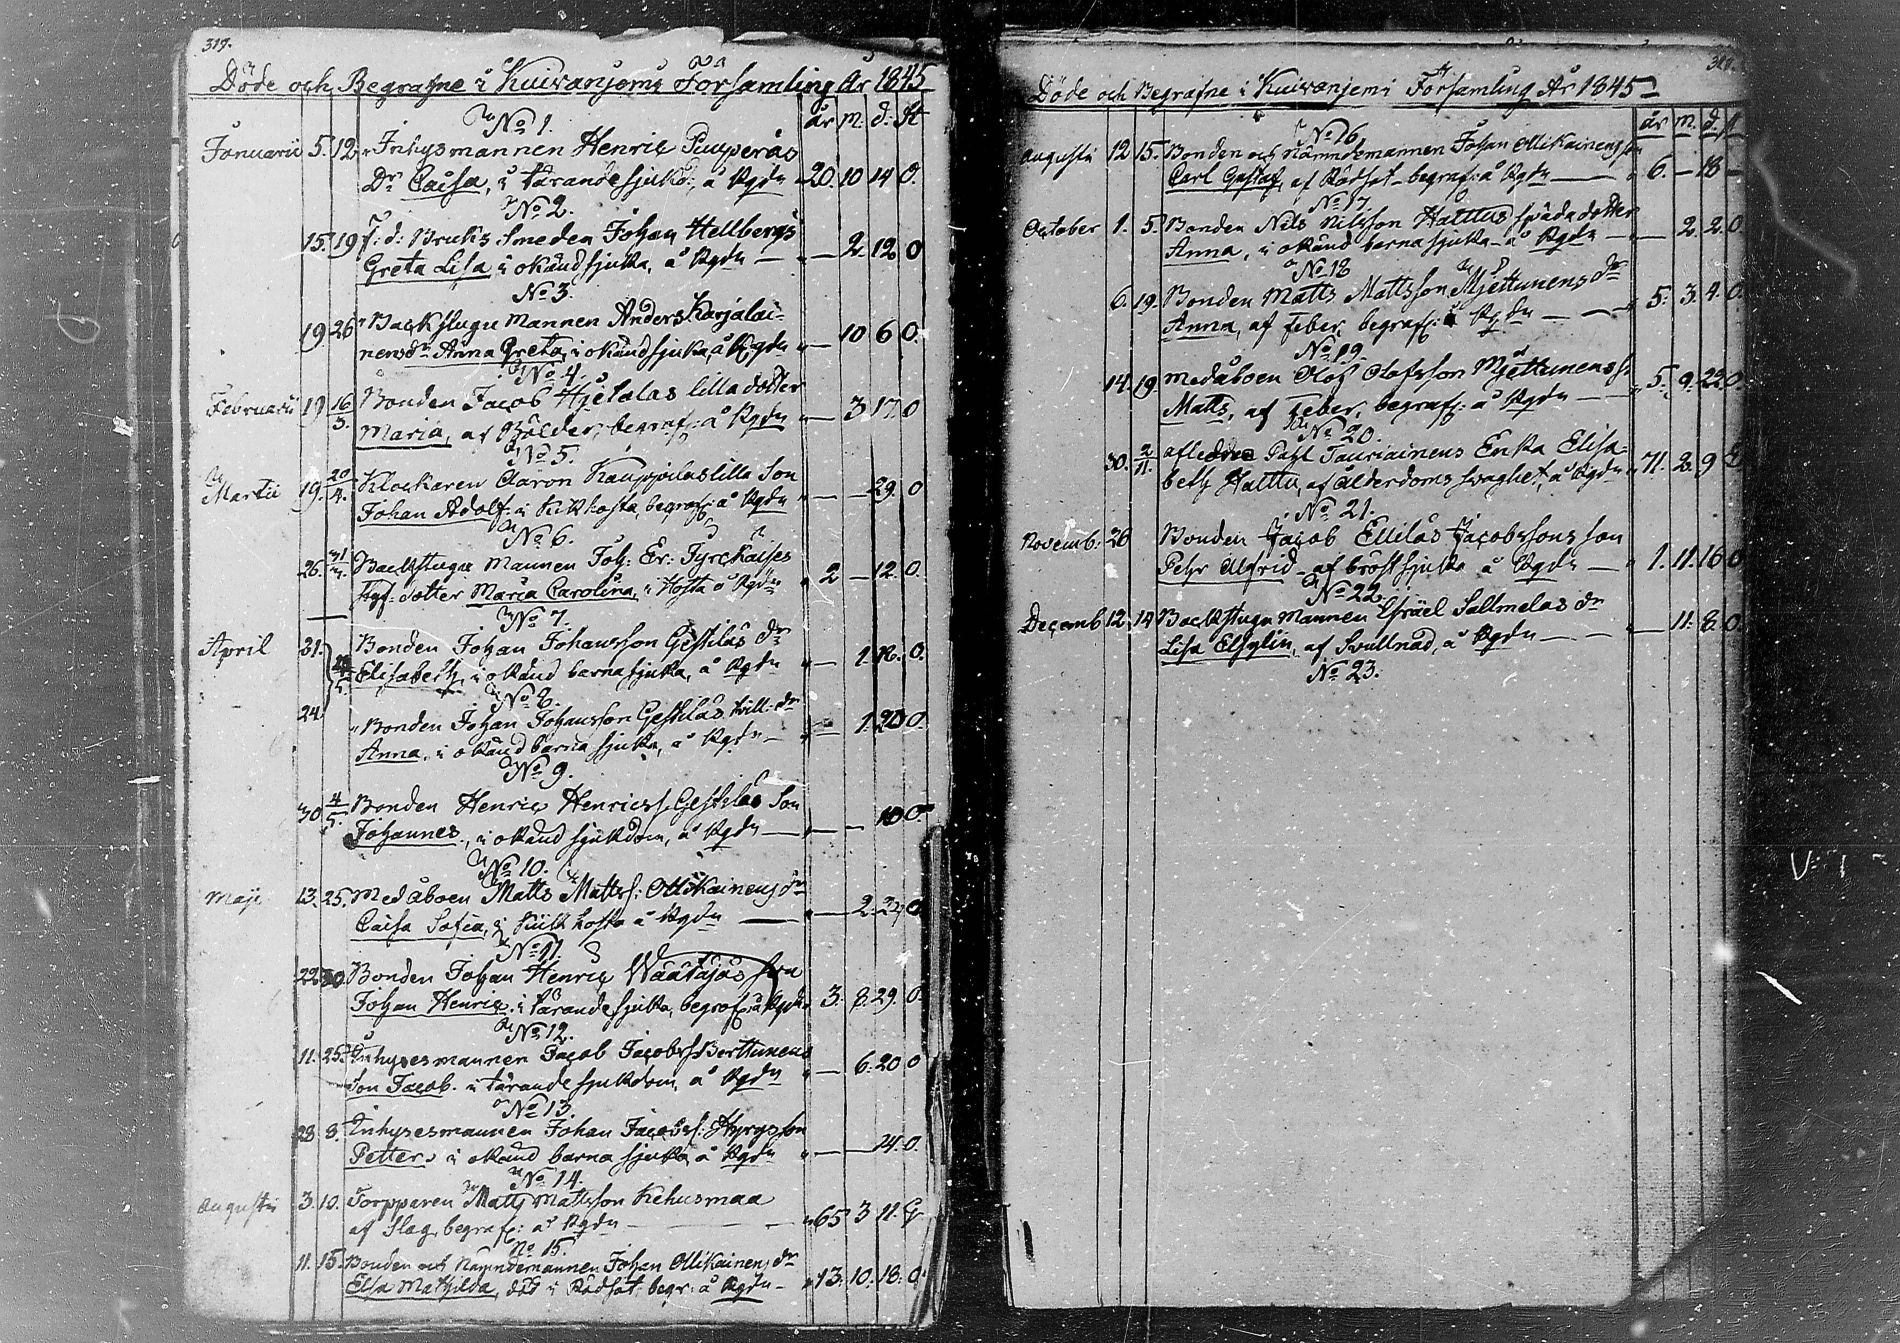 319.
Döde och Begrafne i Kuivanjemi Församling År 1845
år m. d. st
No 1.
Januarii 5. 12. Inhysmannen Henric Puuperäs
Dr Caisa, i tärande sjukd: å Kgdn 20. 10 14 O.
No 2.
15. 19 F: d: Bruks Smeden Johan Hellbergs
Greta Lisa, i okänd sjukd, å Kgdn — 2. 12 O
No 3.
19 26 Backstugu mannen Anders Karjalai-
nens dr Anna Greta, i okänd sjukd, å Kgdn — 10 6 O.
No 4.
Februarii 19 16/3. Bonden Jacob Hjetalas lilla dotter
Maria, af Bölder, begraf: å Kgdn — 3 17. O
No 5.
Martii 19. 20/4. Klockaren Aaron Kauppilas lilla Son
Johan Adolf. i kikhosta, begraf: å Kgdn — — 29. O
No 6.
26. 31/3. Backstugu mannen Joh: Er: Tyrckäises
dotter Maria Carolina, i Hosta å Kgdn 2 — 12. O.
No 7.
April 21. Bonden Johan Johansson Gestiläs dr
Elisabeth, i okänd barnasjukd, å Kgdn — 1. O.
No 8.
24 Bonden Johan Johansson Gestiläs tvill: dr
Anna, i okänd barnasjukd, å Kgdn — 1. 20 O.
No 9.
30 4/5. Bonden Henric Henricss. Gestiläs Son
Johannes, i okänd sjukdom, å Kgdn — — — 10 O.
No 10.
Maji 13. 25. Medåboen Matts Mattss: Ollikainens dr
Caisa Sofia, i kikhosta å Kgdn — 2. 23 O
No 11.
22 30 Bonden Johan Henric Wäätäjäs son
Johan Henric, i tärande sjukd, begraf: å Kgdn 3. 8. 29. O.
No 12.
11. 25. Inhysesmannen Jacob Jacobss Berttunens
Son Jacob. i tärande sjukdom, å Kgdn — 6. 20 O
No 13.
28 8. Inhysesmannen Johan Jacobss: Hyrys son
Petter, i okänd barnasjukd, å Kgdn — — 24. O.
No 14.
Augusti 3. 10. Torpparen Matts Mattsson Kehusmaa
af Slag, begraf: å Kgdn — 65 3 11. G
No 15.
11. 15. Bonden och Nämndemannen Johan Ollikainens dr
Elsa Mathilda, död i Rödsot. begr: å Kgdn — 13. 10. 18. O.
Döde och Begrafne i Kuivanjemi Församling År 1845
år m. d.
No 16.
Augusti 12 15. Bonden och Nämndemannen Johan Ollikainens son
Carl Gustaf, af Rödsot - begraf: å Kgdn — 6. — 18 —
No 17.
October 1. 5. Bonden Nils Nilsson Halttus späda dotter
Anna, i okänd barnasjukd - å Kgdn — 2. 2. O
No 18
6. 19. Bonden Matts Mattsson Mjettunens dr
Anna, af Feber, begraf: å Kgdn — 5. 3. 4. O.
No 19.
14. 19 Medåboen Olof Olofsson Mjettunens s.
Matts, af Feber, begraf: å Kgdn — 5. 9. 22 O.
No 20.
30. 2/11. afledne Pahl Tauriainens Enka Elisa-
beth Halttu, af ålderdoms svaghet, å Kgdn 71. 2. 9 E
No 21.
Novemb: 26 Bonden Jacob Ellilas Jacobssons son
Pehr Alfrid - af bröstsjukd å Kgdn — 1. 11. 16 O
No 22.
Decemb 12. 14 Backstugu mannen Isräel Sallmelas dr
Lisa Elsylin, af Svullnad, å Kgdn — — — 11. 8. O.
No 23.